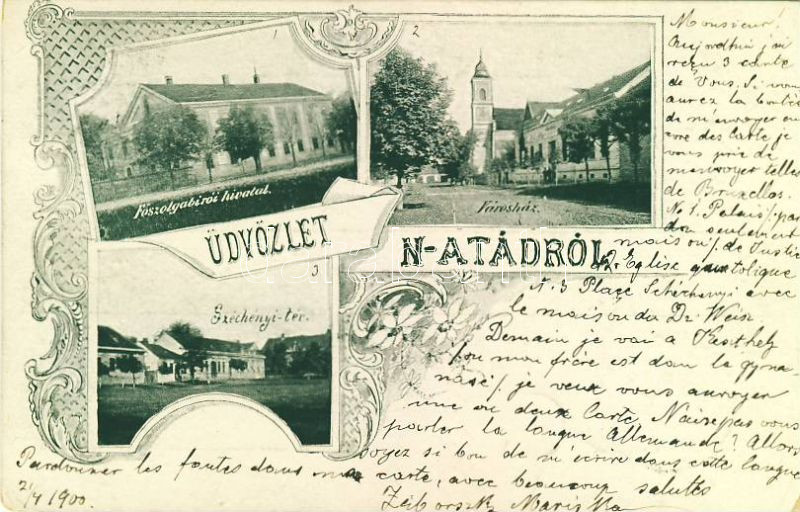 1
2
3
Főszolgabírói hivatal.
Városház.
ÜDVÖZLET
N-ATÁDRÓL
Széchenyi-tér.
Monsieur.
Aujordhui j'ai
reçu 3 carte
de Vous. Si vous
aurez la bonté
de m'envoyer en
des Carte je
vous prie de
m'envoyer telles
de Bruxelles.
N. 1. Palais/ par
don seulement
maison/ de Justic
N2. Eglise
N. 3 Place Schéchenyi avec
le maison du Dr Weisz
Demain je vai à Kesthely
/ou mon frère est dan le gym
nase/ je veux vous anvoyer
une ou deux Carte. N'aisepas vous
parler la langue Allemande? Allors
soyez si bon de m'écrire dans cette langue
Pardonner les fautes dans ma carte, avec beaucoup salutes
2/4 1900.
Mariska